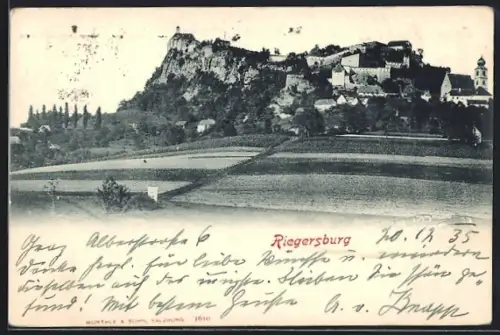 Riegersburg
20. 12. 35
Graz Alberstrasse 6
Danke herzl. für liebe Wünsche u. erwidere
dieselben auf das Bleiben Sie schön ge-
sund! Mit besten Grüßen A. v. Knapp
WÜRTHLE & SOHN, SALZBURG. 1610